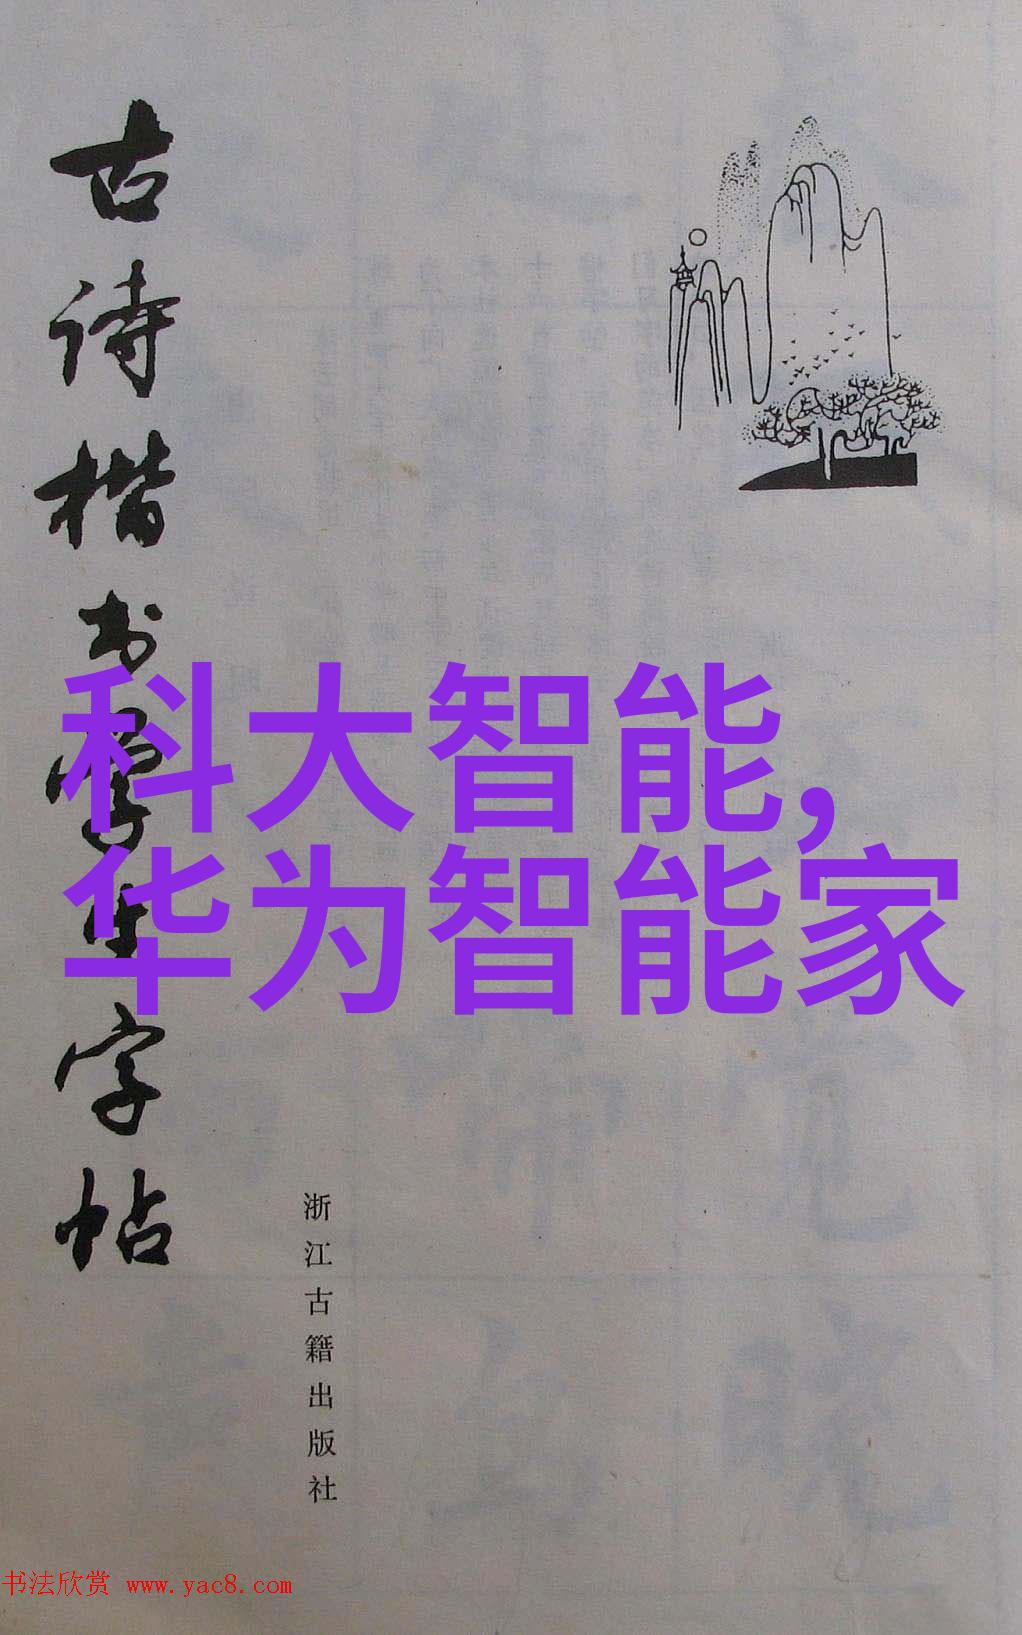 古诗楷书学生字帖
科大智能,
华为智能家
浙江古籍出版社
书法欣赏 www.yac8.com